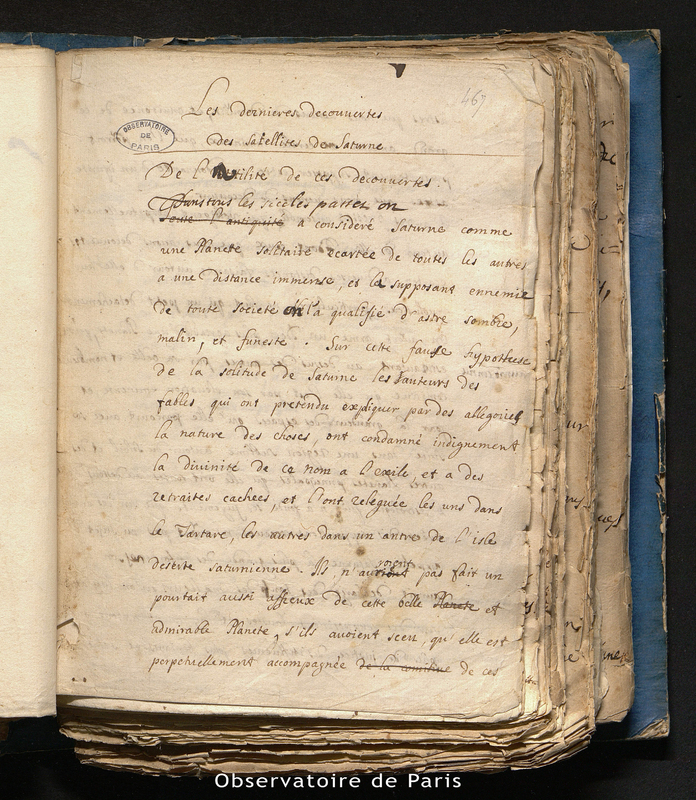 467
Les dernieres decouvertes
des Satellites de Saturne
OBSERVATOIRE
DE
PARIS
De l'utilité de ces decouvertes.
Dans tous les siecles passez on
Toute l'antiquité a consideré Saturne comme
une Planete solitaire ecartée de toutes les autres
a une distance immense, et la supposant ennemie
de toute societé on l'a qualifié d'astre sombre,
malin, et funeste. Sur cette fausse hypothese
de la solitude de Saturne les auteurs des
fables qui ont pretendu expliquer par des allegories
la nature des choses, ont condamné indignement
la divinité de ce nom a l'exile, et a des
retraites cachées, et l'ont releguée les uns dans
le Tartare, les autres dans un antre de l'isle
deserte saturnienne. Ils n'auroient pas fait un
pourtait aussi affreux de cette belle Planete et
admirable Planete, s'ils avoient sceu, qu'elle est
perpetuellement accompagnée de la comitive de ces
Observatoire de Paris